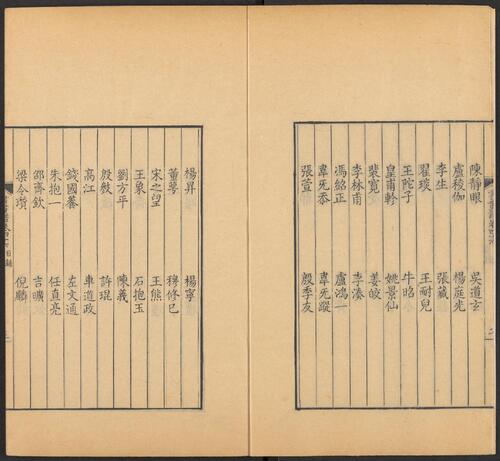 陳靜眼 吳道玄
盧稜伽 楊庭光
李生 張藏
翟琰 王耐兒
王陀子 牛昭
皇甫軫 姚景仙
裴寬 姜皎
李林甫 李湊
馮紹正 盧鴻一
韋旡忝 韋旡蹤
張萱 殷季友
楊昇 楊寧
董萼 穆修已
宋之望 王熊
王象 石抱玉
劉方平 陳義
殷敫 許琨
高江 車道政
錢國養 左文通
朱抱一 任直亮
邵齋欽 吉曠
梁令瓚 倪麟